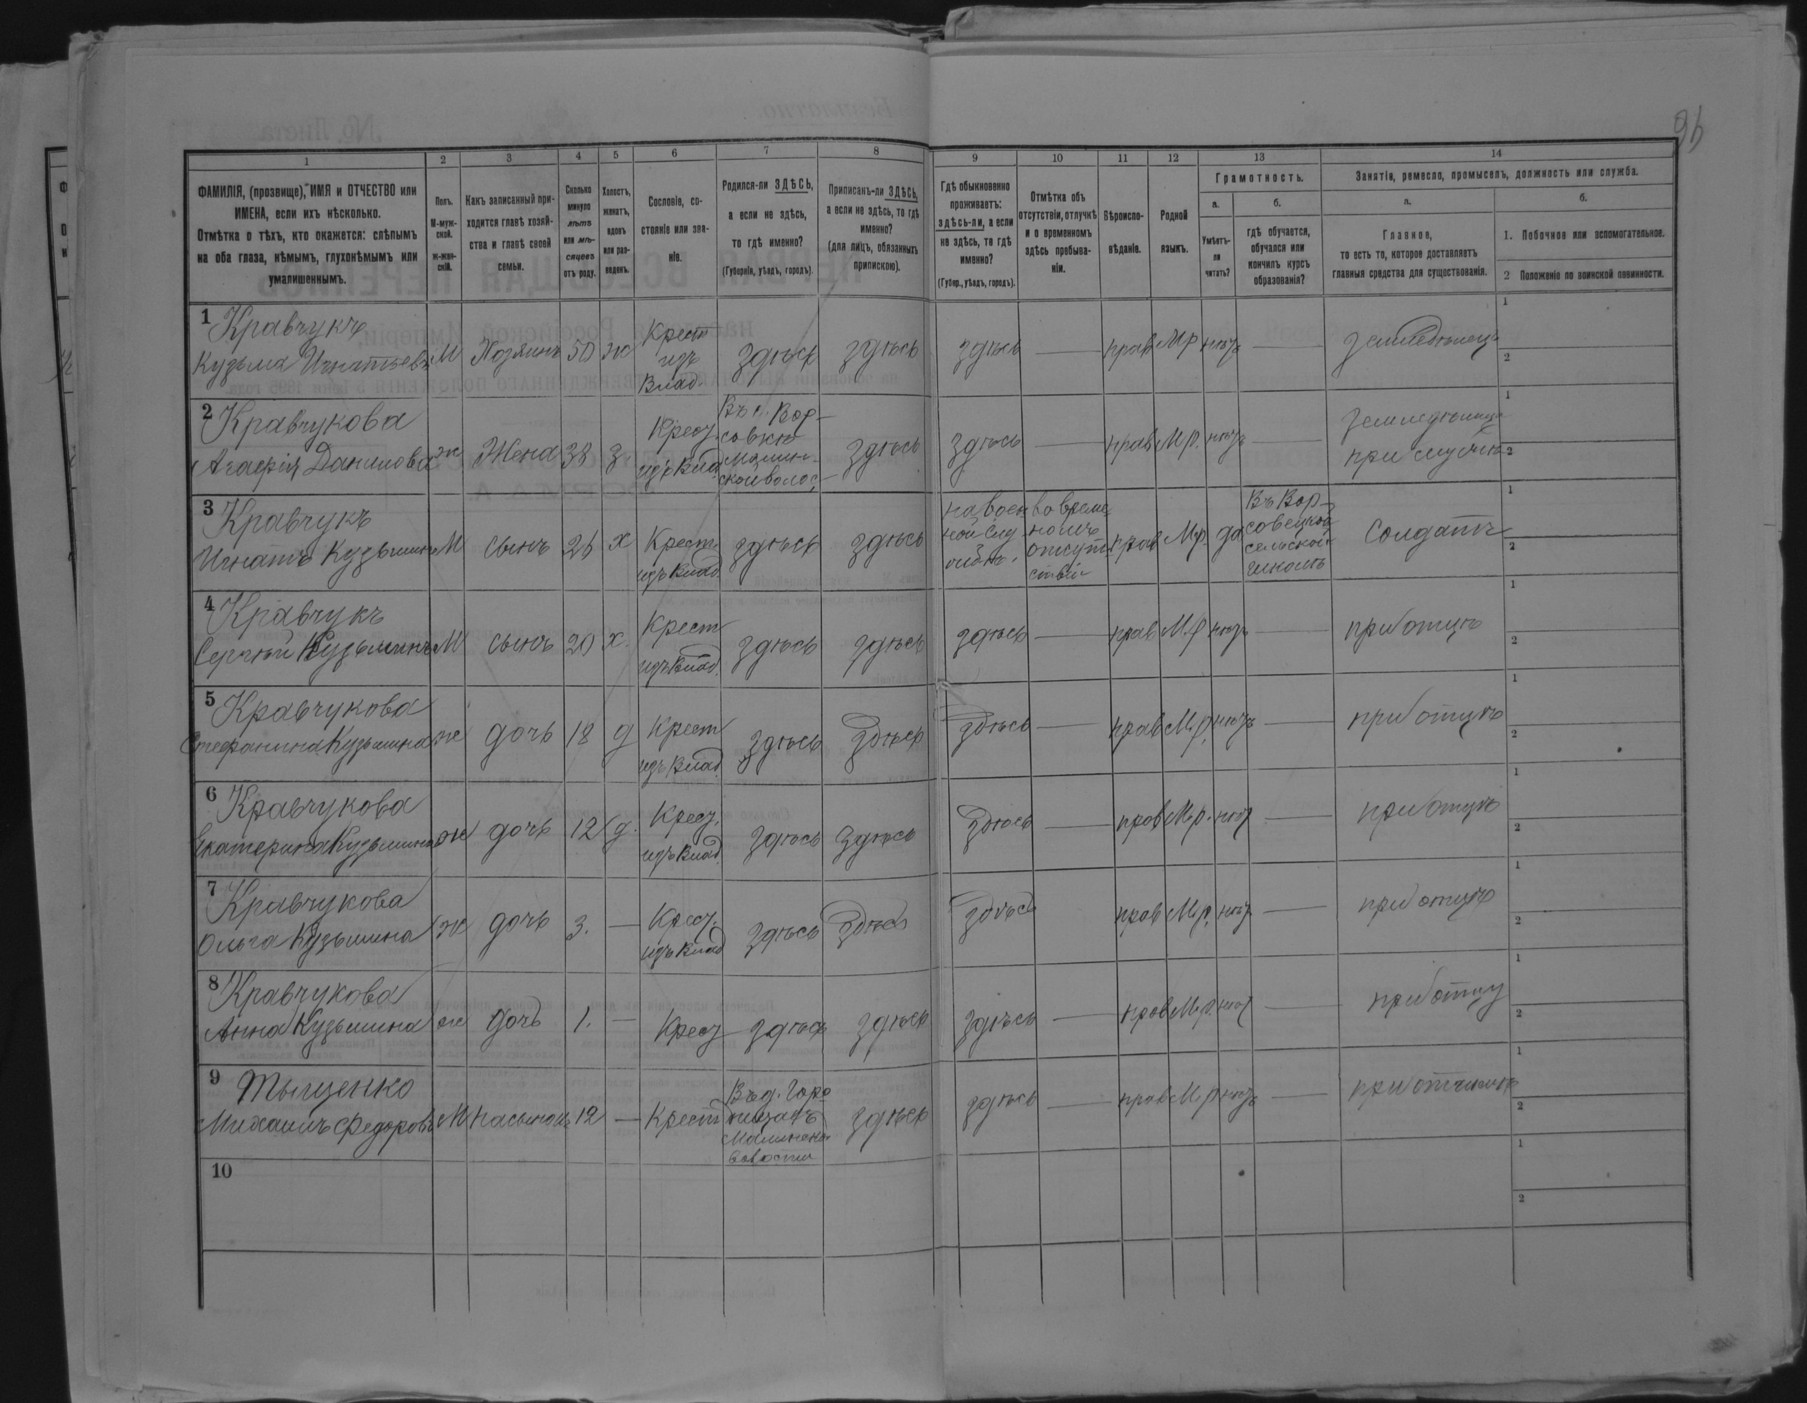 96
1 2 3 4 5 6 7 8 9 10 11 12 13 14
ФАМИЛІЯ, (прозвище), ИМЯ и ОТЧЕСТВО или
ИМЕНА, если ихъ нѣсколько.
Отмѣтка о тѣхъ, кто окажется: слѣпымъ
на оба глаза, нѣмымъ, глухонѣмымъ или
умалишеннымъ.
Полъ.
М-муж-
ской.
ж-жен-
скій.
Какъ записанный при-
ходится главѣ хозяй-
ства и главѣ своей
семьи.
Сколько
минуло
лѣтъ
или мѣ-
сяцевъ
отъ роду.
Холостъ,
женатъ,
вдовъ
или раз-
веденъ.
Сословіе, со-
стояніе или зва-
ніе.
Родился-ли ЗДѢСЬ,
а если не здѣсь,
то гдѣ именно?
(Губернія, уѣздъ, городъ).
Приписанъ-ли ЗДѢСЬ,
а если не здѣсь, то гдѣ
именно?
(для лицъ, обязанныхъ
припискою).
Гдѣ обыкновенно
проживаетъ:
здѣсь-ли, а если
не здѣсь, то гдѣ
именно?
(Губер., уѣздъ, городъ).
Отмѣтка объ
отсутствіи, отлучкѣ
и о временномъ
здѣсь пребыва-
ніи.
Вѣроиспо-
вѣданіе.
Родной
языкъ.
Грамотность.
а.
Умѣетъ-
ли
читать?
б.
гдѣ обучается,
обучался или
кончилъ курсъ
образованія?
Занятіе, ремесло, промыселъ, должность или служба.
а.
Главное,
то есть то, которое доставляетъ
главныя средства для существованія.
б.
1. Побочное или вспомогательное.
2 Положеніе по воинской повинности.
1 Кравчукъ
Кузьма Игнатьевъ М Хозяинъ 50 ж Крест изъ Влад. здѣсь здѣсь здѣсь — прав Мр нѣтъ — Земледѣлецъ
1
2
2 Кравчукова
Агафія Данилова ж Жена 38 з Крес. изъ Влад. Въ с. Вор-
совкѣ
Малин-
ской волос. здѣсь здѣсь — прав Мр. нѣтъ — Земледѣлица
при мужѣ
1
2
3 Кравчукъ
Игнатъ Кузьминъ М сынъ 26 х Крест. изъ Влад. здѣсь здѣсь на воен
ной слу
жбѣ. во време
номъ
отсут
ствіи прав Мр. да Въ Вор-
совецкой
сельской
школѣ Солдатъ
1
2
4 Кравчукъ
Сергѣй Кузьминъ М сынъ 20 х. Крест изъ Влад. здѣсь здѣсь здѣсь — прав Мр нѣтъ — при отцѣ
1
2
5 Кравчукова
Степанина Кузьмина ж дочь 18 д Крест изъ Влад. здѣсь здѣсь здѣсь — прав М.р. нѣтъ — при отцѣ
1
2
6 Кравчукова
Екатерина Кузьмина ж дочь 12 д. Крес. изъ Влад. здѣсь здѣсь здѣсь — прав Мр. нѣт — при отцѣ
1
2
7 Кравчукова
Ольга Кузьмина ж дочь 3. — Крес. изъ Влад здѣсь здѣсь здѣсь — прав М.р. нѣт — при отцѣ
1
2
8 Кравчукова
Анна Кузьмина ж дочь 1. — Крес здѣсь здѣсь здѣсь — прав М.р. нѣт — при отцу
1
2
9 Тыщенко
Михаилъ Федоровъ М пасынокъ 12 — Крест Въ д. Горо
дищахъ
Малинской
волости здѣсь здѣсь — прав М.р нѣтъ — при отчимѣ
1
2
10
1
2